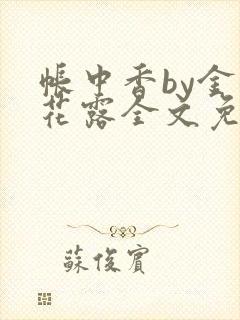 帳中香by金
花露全文免
蘇俊賓